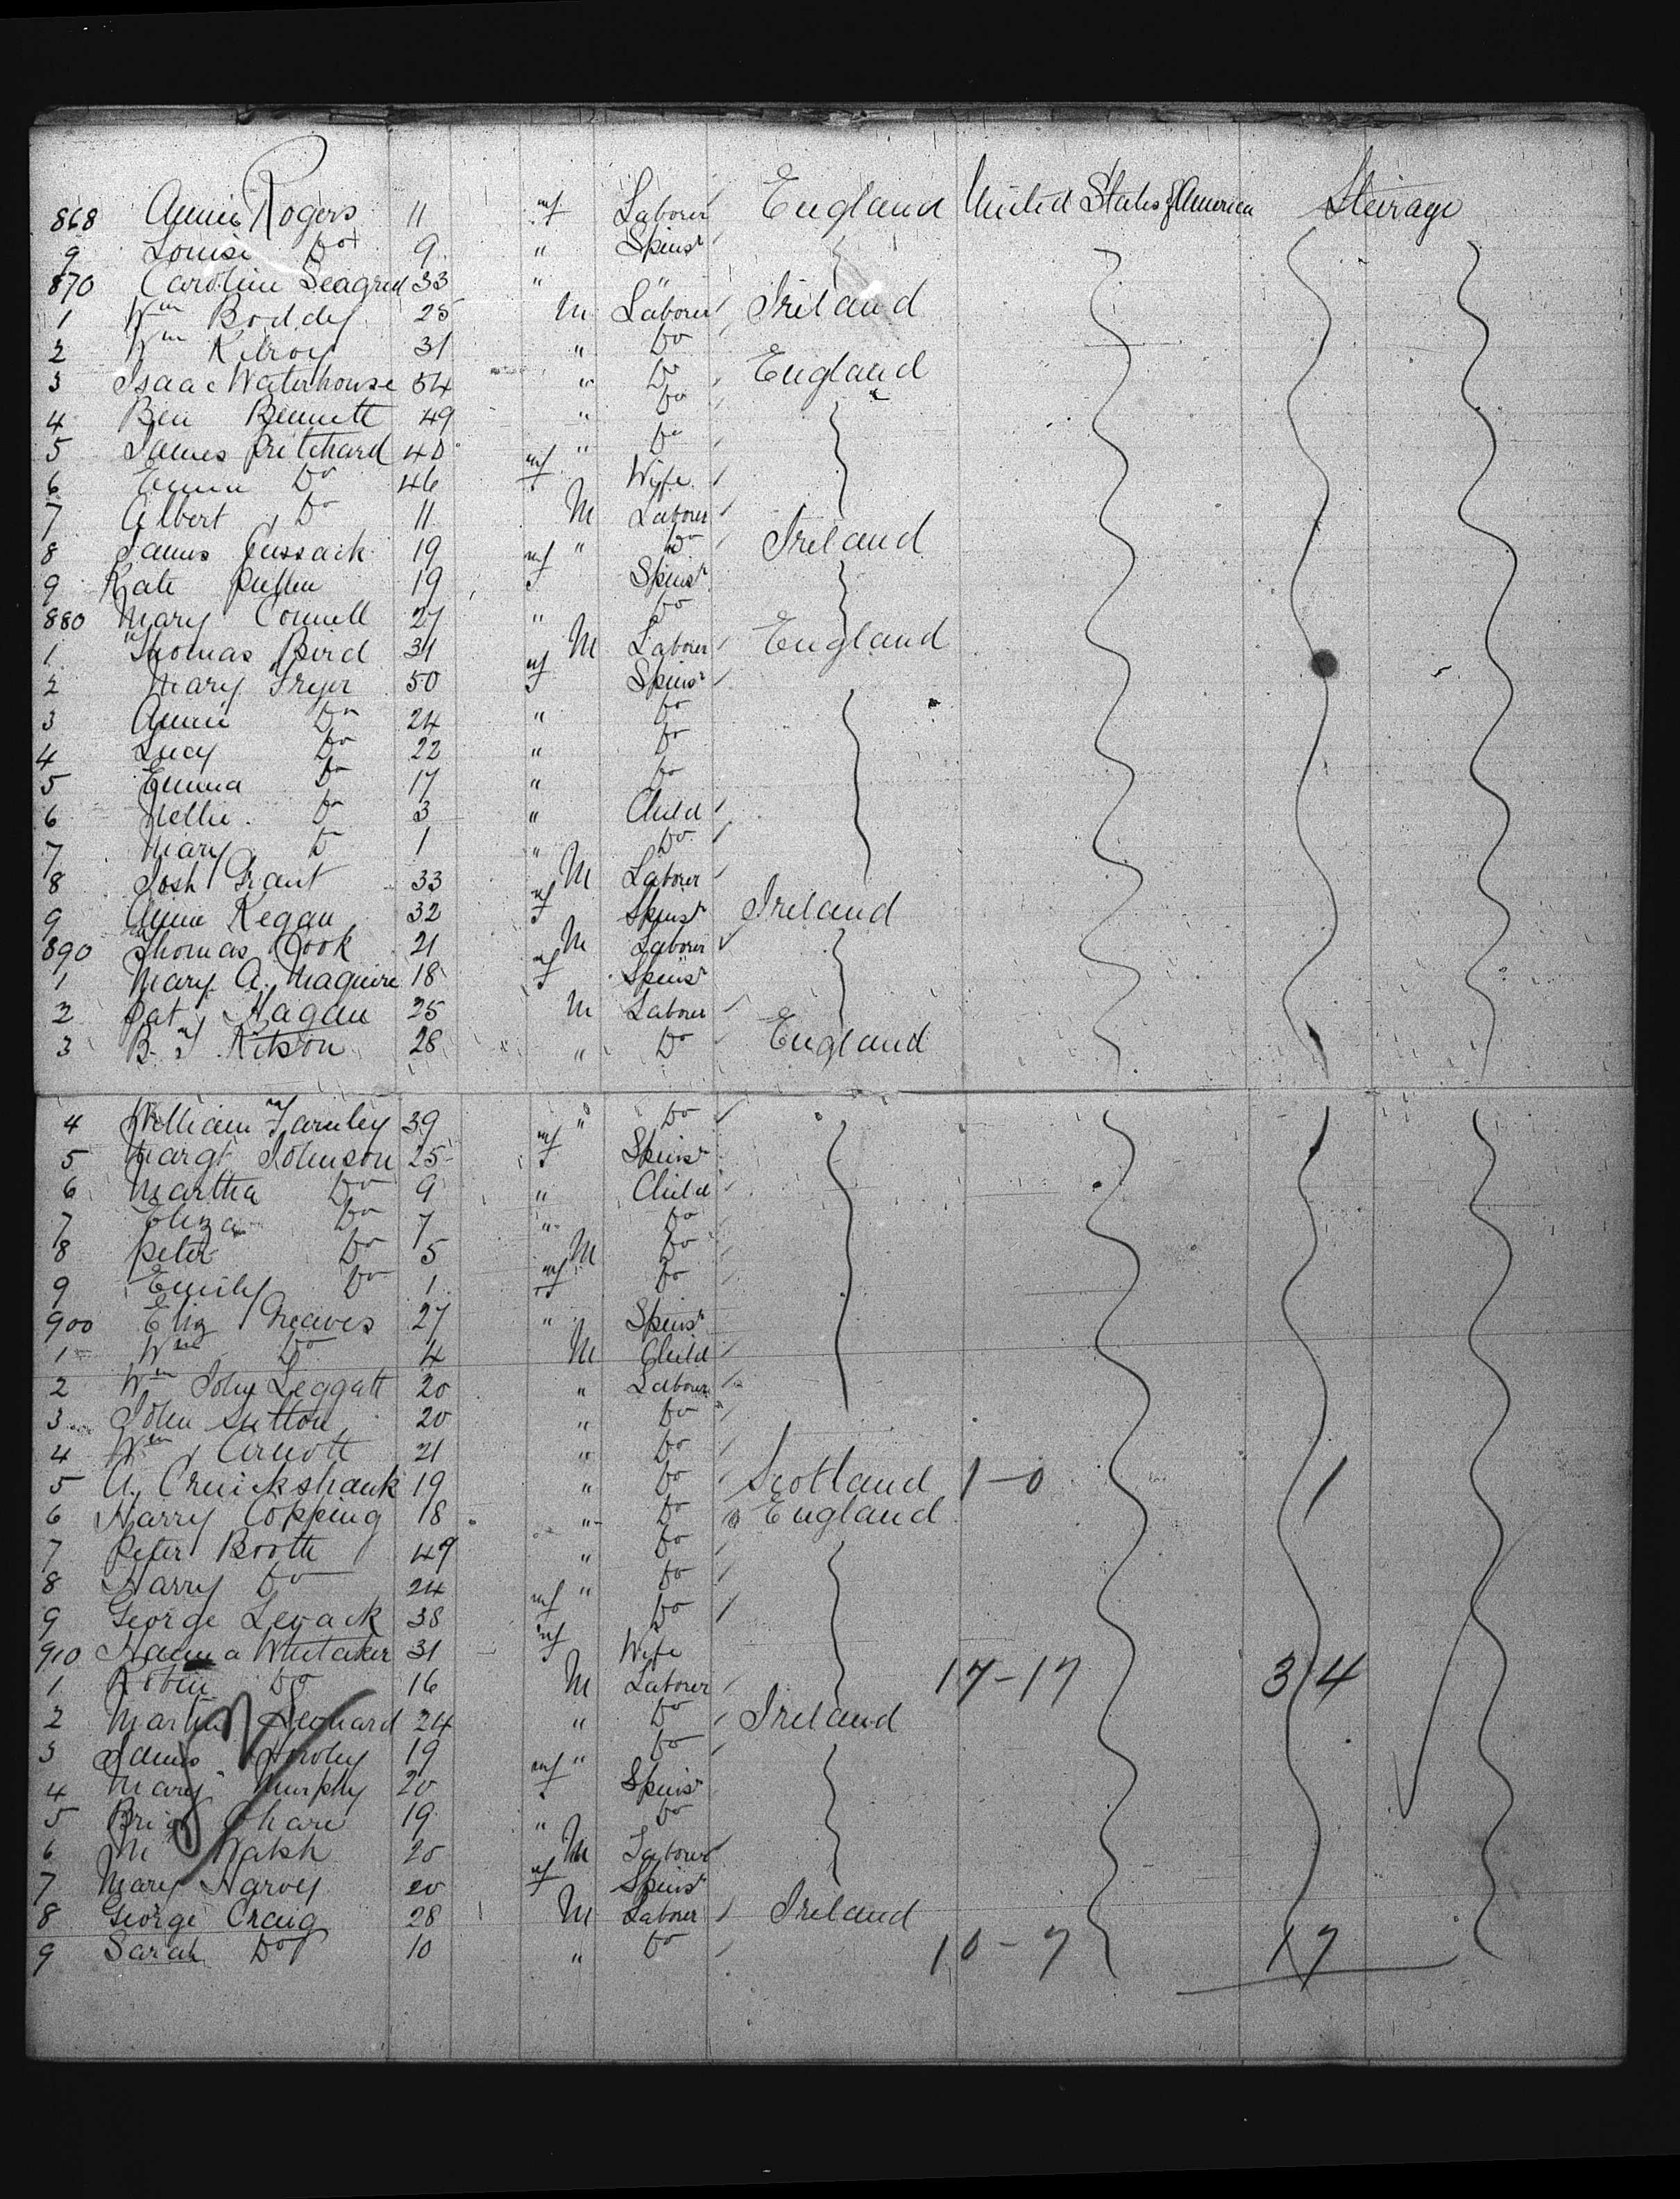 868 Annie Rogers 11 f Laborer England United States of America Steirage
9 Louise Do 9 " Spinsr
870 Caroline Seagred 33 " "
1 Wm Boddy 25 M Laborer Ireland
2 Wm Kilroy 31 " Do
3 Isaac Waterhouse 54 " Do England
4 Ben Bennett 49 " Do
5 James Pritchard 40 " Do
6 Emma Do 46 f Wife
7 Albert Do 11 M Laborer
8 James Cussack 19 " Do Ireland
9 Kate Pullen 19 f Spinsr
880 Mary Connell 27 " Do
1 Thomas Bird 31 M Laborer England
2 Mary Fryer 50 f Spinsr
3 Annie Do 24 " Do
4 Lucy Do 22 " Do
5 Emma Do 17 " Do
6 Nellie Do 3 " Child
7 Mary Do 1 " Do
8 Josh Grant 33 M Laborer
9 Annie Regan 32 f Spinsr Ireland
890 Thomas Cook 21 M Laborer
1 Mary A. Maguire 18 f Spinsr
2 Pat Hagan 25 M Laborer
3 B. F. Kitson 28 " Do England
4 William Farnley 39 " Do
5 Margt Johnson 25 f Spinsr
6 Martha Do 9 " Child
7 Eliza Do 7 " Do
8 Peter Do 5 M Do
9 Emily Do 1 f Do
900 Eliz Greaves 27 " Spinsr
1 Wm Do 4 M Child
2 Wm John Leggatt 20 " Laborer
3 John Sutton 20 " Do
4 Wm Arnott 21 " Do
5 A. Cruickshank 19 " Do Scotland 1-0 1
6 Harry Copping 18 " Do England
7 Peter Booth 49 " Do
8 Harry Do 24 " Do
9 George Levack 38 Do
910 Hanna Whitaker 31 f Wife
1 Robin Do 16 M Laborer 17-17 34
2 Martin Leonard 24 " Do Ireland
3 James 19 " Do
4 Mary Murphy 20 f Spinsr
5 Brigt Ohare 19 " Do
6 M Walsh 20 M Laborer
7 Mary Harvey 20 f Spinsr
8 George Craig 28 M Laborer Ireland
9 Sarah Do 10 " Do 10-7 17